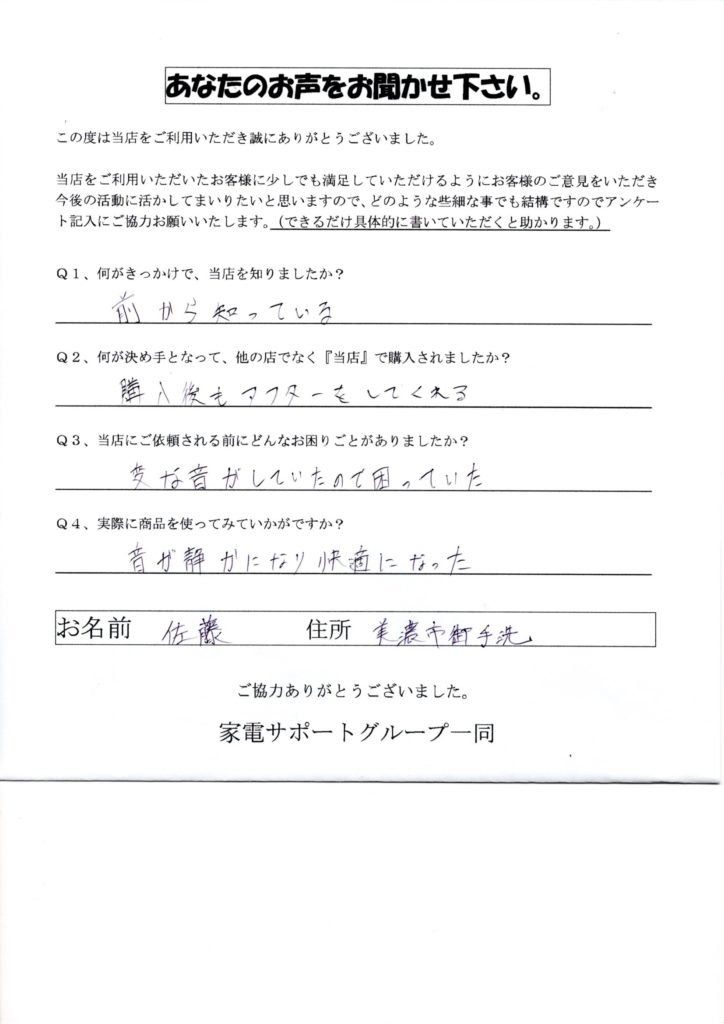 あなたのお声をお聞かせ下さい。
この度は当店をご利用いただき誠にありがとうございました。
当店をご利用いただいたお客様に少しでも満足していただけるようにお客様のご意見をいただき
今後の活動に活かしてまいりたいと思いますので、どのような些細な事でも結構ですのでアンケー
ト記入にご協力お願いいたします。（できるだけ具体的に書いていただくと助かります。）
Ｑ１、何がきっかけで、当店を知りましたか？
前から知っている
Ｑ２、何が決め手となって、他の店でなく『当店』で購入されましたか？
購入後もアフターをしてくれる
Ｑ３、当店にご依頼される前にどんなお困りごとがありましたか？
変な音がしていたので困っていた
Ｑ４、実際に商品を使ってみていかがですか？
音が静かになり快適になった
お名前 佐藤 住所 美濃市御手洗
ご協力ありがとうございました。
家電サポートグループ一同